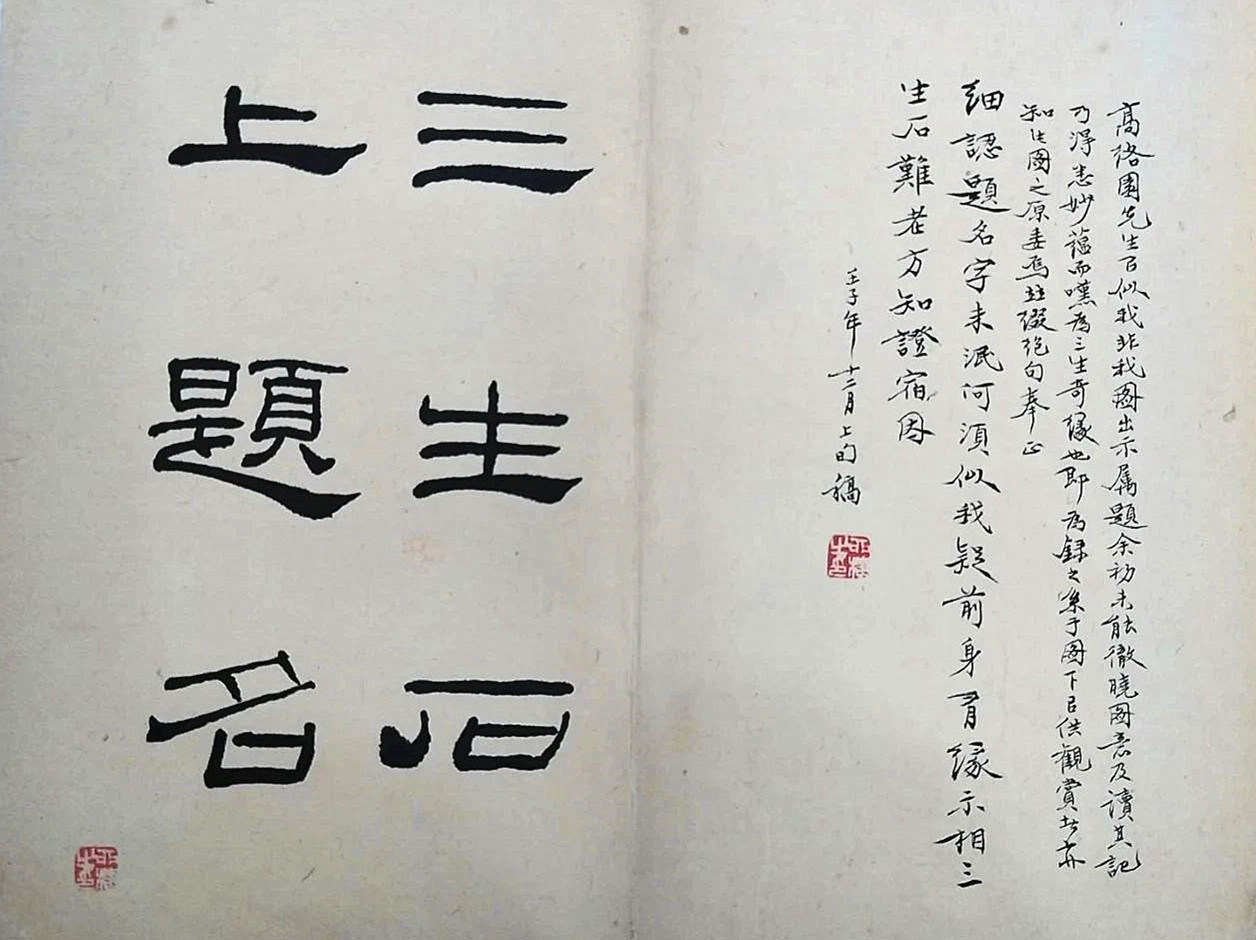 高络園先生㠯似我非我图出示属題余初未能徹曉图意及讀其記
乃得悉妙蕴而嘆為三生奇缘也即為録之系于图下㠯供觀賞者亦
知此图之原委焉并綴绝句奉正
細認題名字未泯何須似我疑前身有缘示相三
生石難老方知證宿因
壬子年十二月上旬稿
三生石
上題名